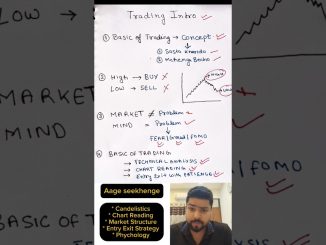 Trading Intro
① Basic of Trading → Concept
① Sasta Kharido
② Mehenga Becho
② High → BUY ×
Low → SELL ×
③ MARKET ≠ Problem
MIND = Problem
FEAR/Greed/FOMO
④ BASIC OF TRADING
→ TECHNICAL ANALYSIS
→ CHART READING
→ Entry Exit with PATIENCE
Aage seekhenge
* Candelistics
* Chart Reading
* Market Structure
* Entry Exit Strategy
* Phychology